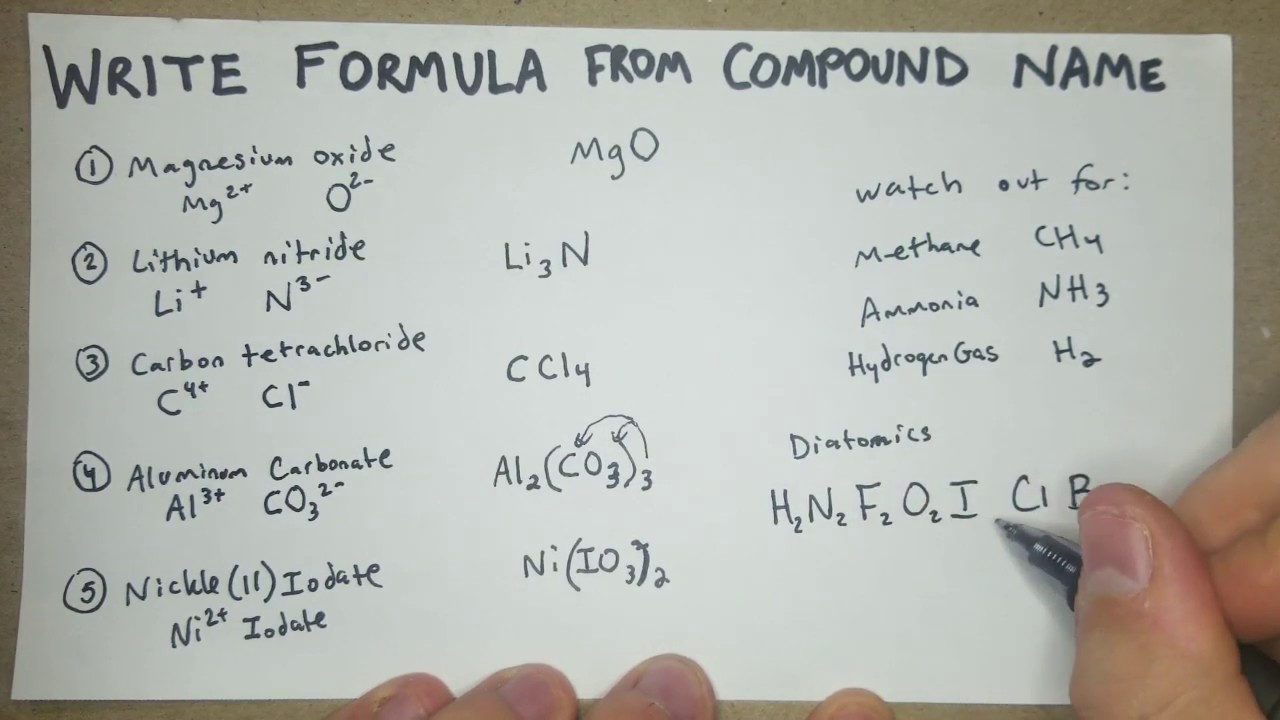 WRITE FORMULA FROM COMPOUND NAME
① Magnesium oxide MgO
Mg²⁺ O²⁻
② Lithium nitride Li₃N
Li⁺ N³⁻
③ Carbon tetrachloride CCl₄
C⁴⁺ Cl⁻
④ Aluminum Carbonate Al₂(CO₃)₃
Al³⁺ CO₃²⁻
⑤ Nickle(II) Iodate Ni(IO₃)₂
Ni²⁺ Iodate
watch out for:
Methane CH₄
Ammonia NH₃
Hydrogen Gas H₂
Diatomics
H₂ N₂ F₂ O₂ I Cl B